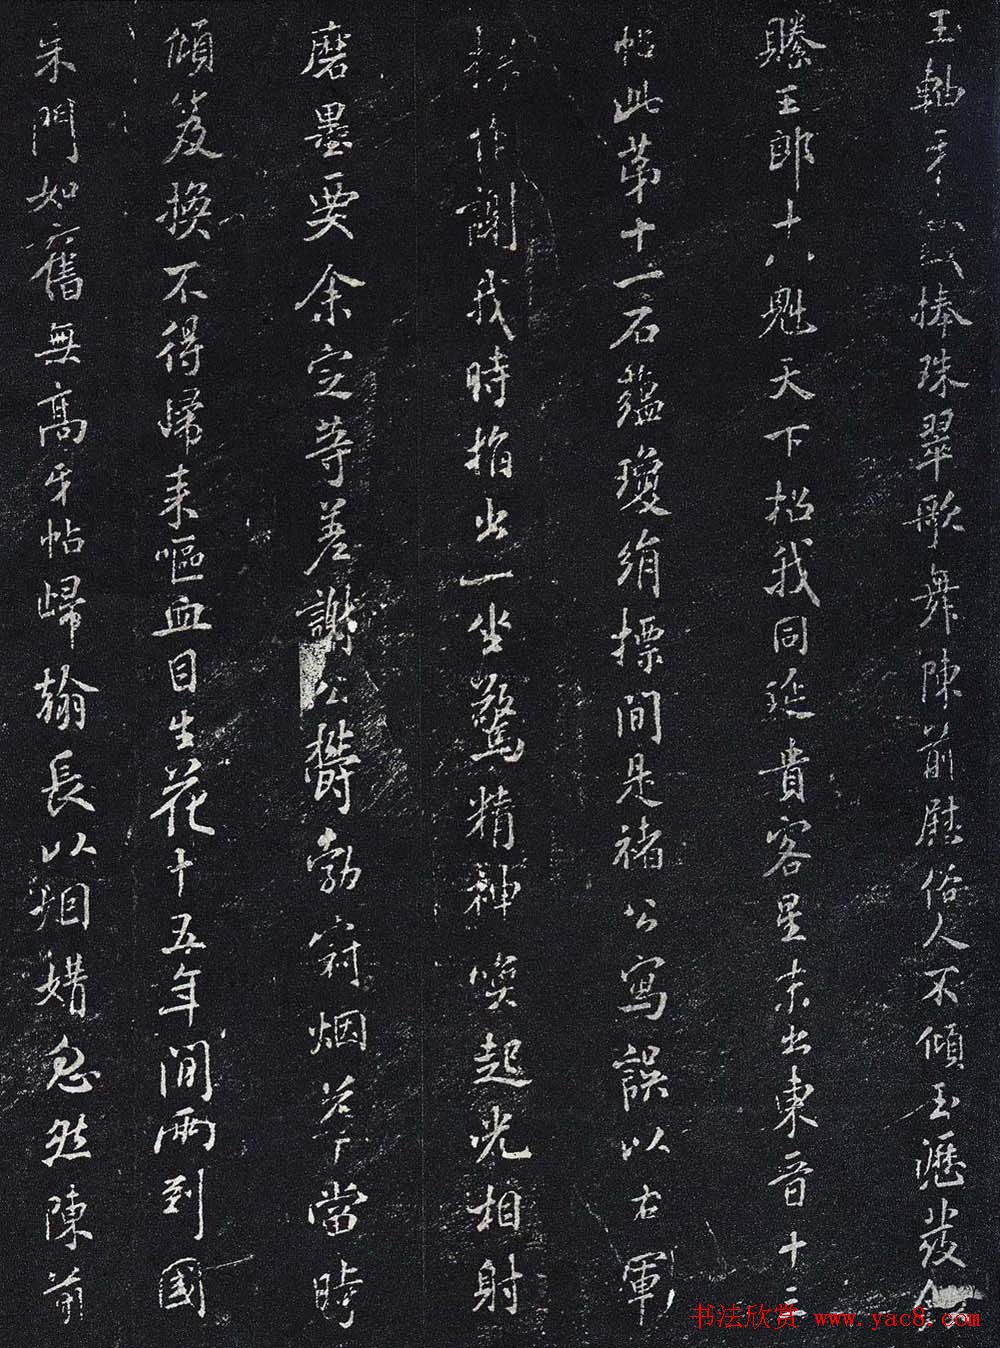 玉軸捧珠翠歌舞陳前慰俗人不傾玉瀝發
賸王郎十八魁天下招我同延貴客星末出東晉十三
帖此第十一石蘊瓊絹摽間是褚公寫誤以右軍
作謝我時指出一坐驚精神喚起光相射
磨墨要余定等差謝公欝勃冠烟若下當時
傾笈換不得歸来嘔血目生花十五年間兩到國
朱門如舊無高牙帖歸翰長以烟媾忽然陳前
书法欣赏 www.yac8.com